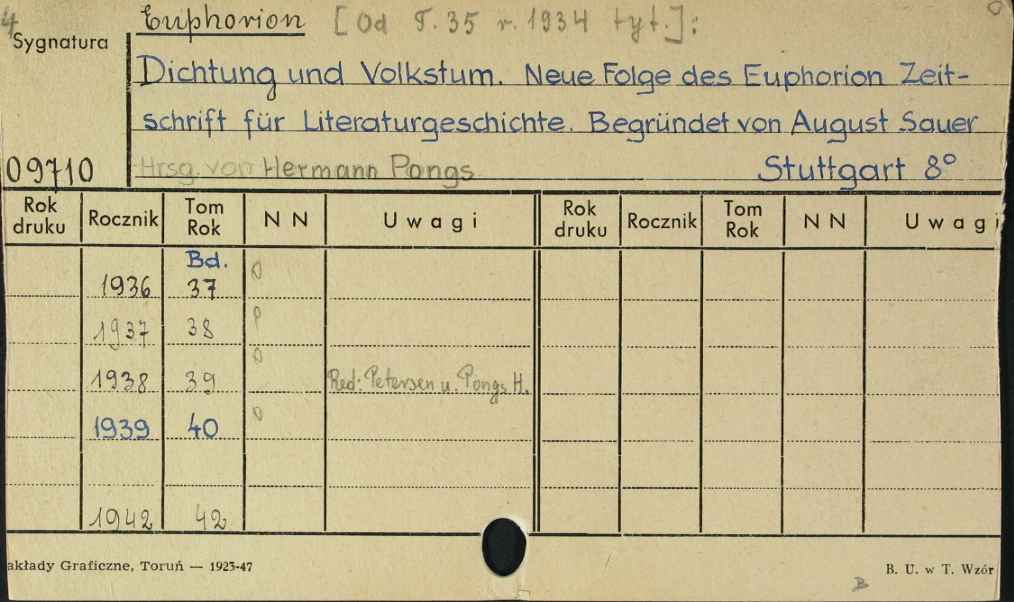 4
Euphorion [Od T. 35 r. 1934 tyt.]:
Sygnatura
Dichtung und Volkstum. Neue Folge des Euphorion Zeit-
schrift für Literaturgeschichte. Begründet von August Sauer
09710 Hrsg. von Hermann Pongs Stuttgart 8°
Rok druku Rocznik Tom Rok N N Uwagi Rok druku Rocznik Tom Rok N N Uwagi
Bd.
1936 37
1937 38
1938 39 Red: Petersen u. Pongs H.
1939 40
1942 42
akłady Graficzne, Toruń — 1925-47 B. U. w T. Wzór
B